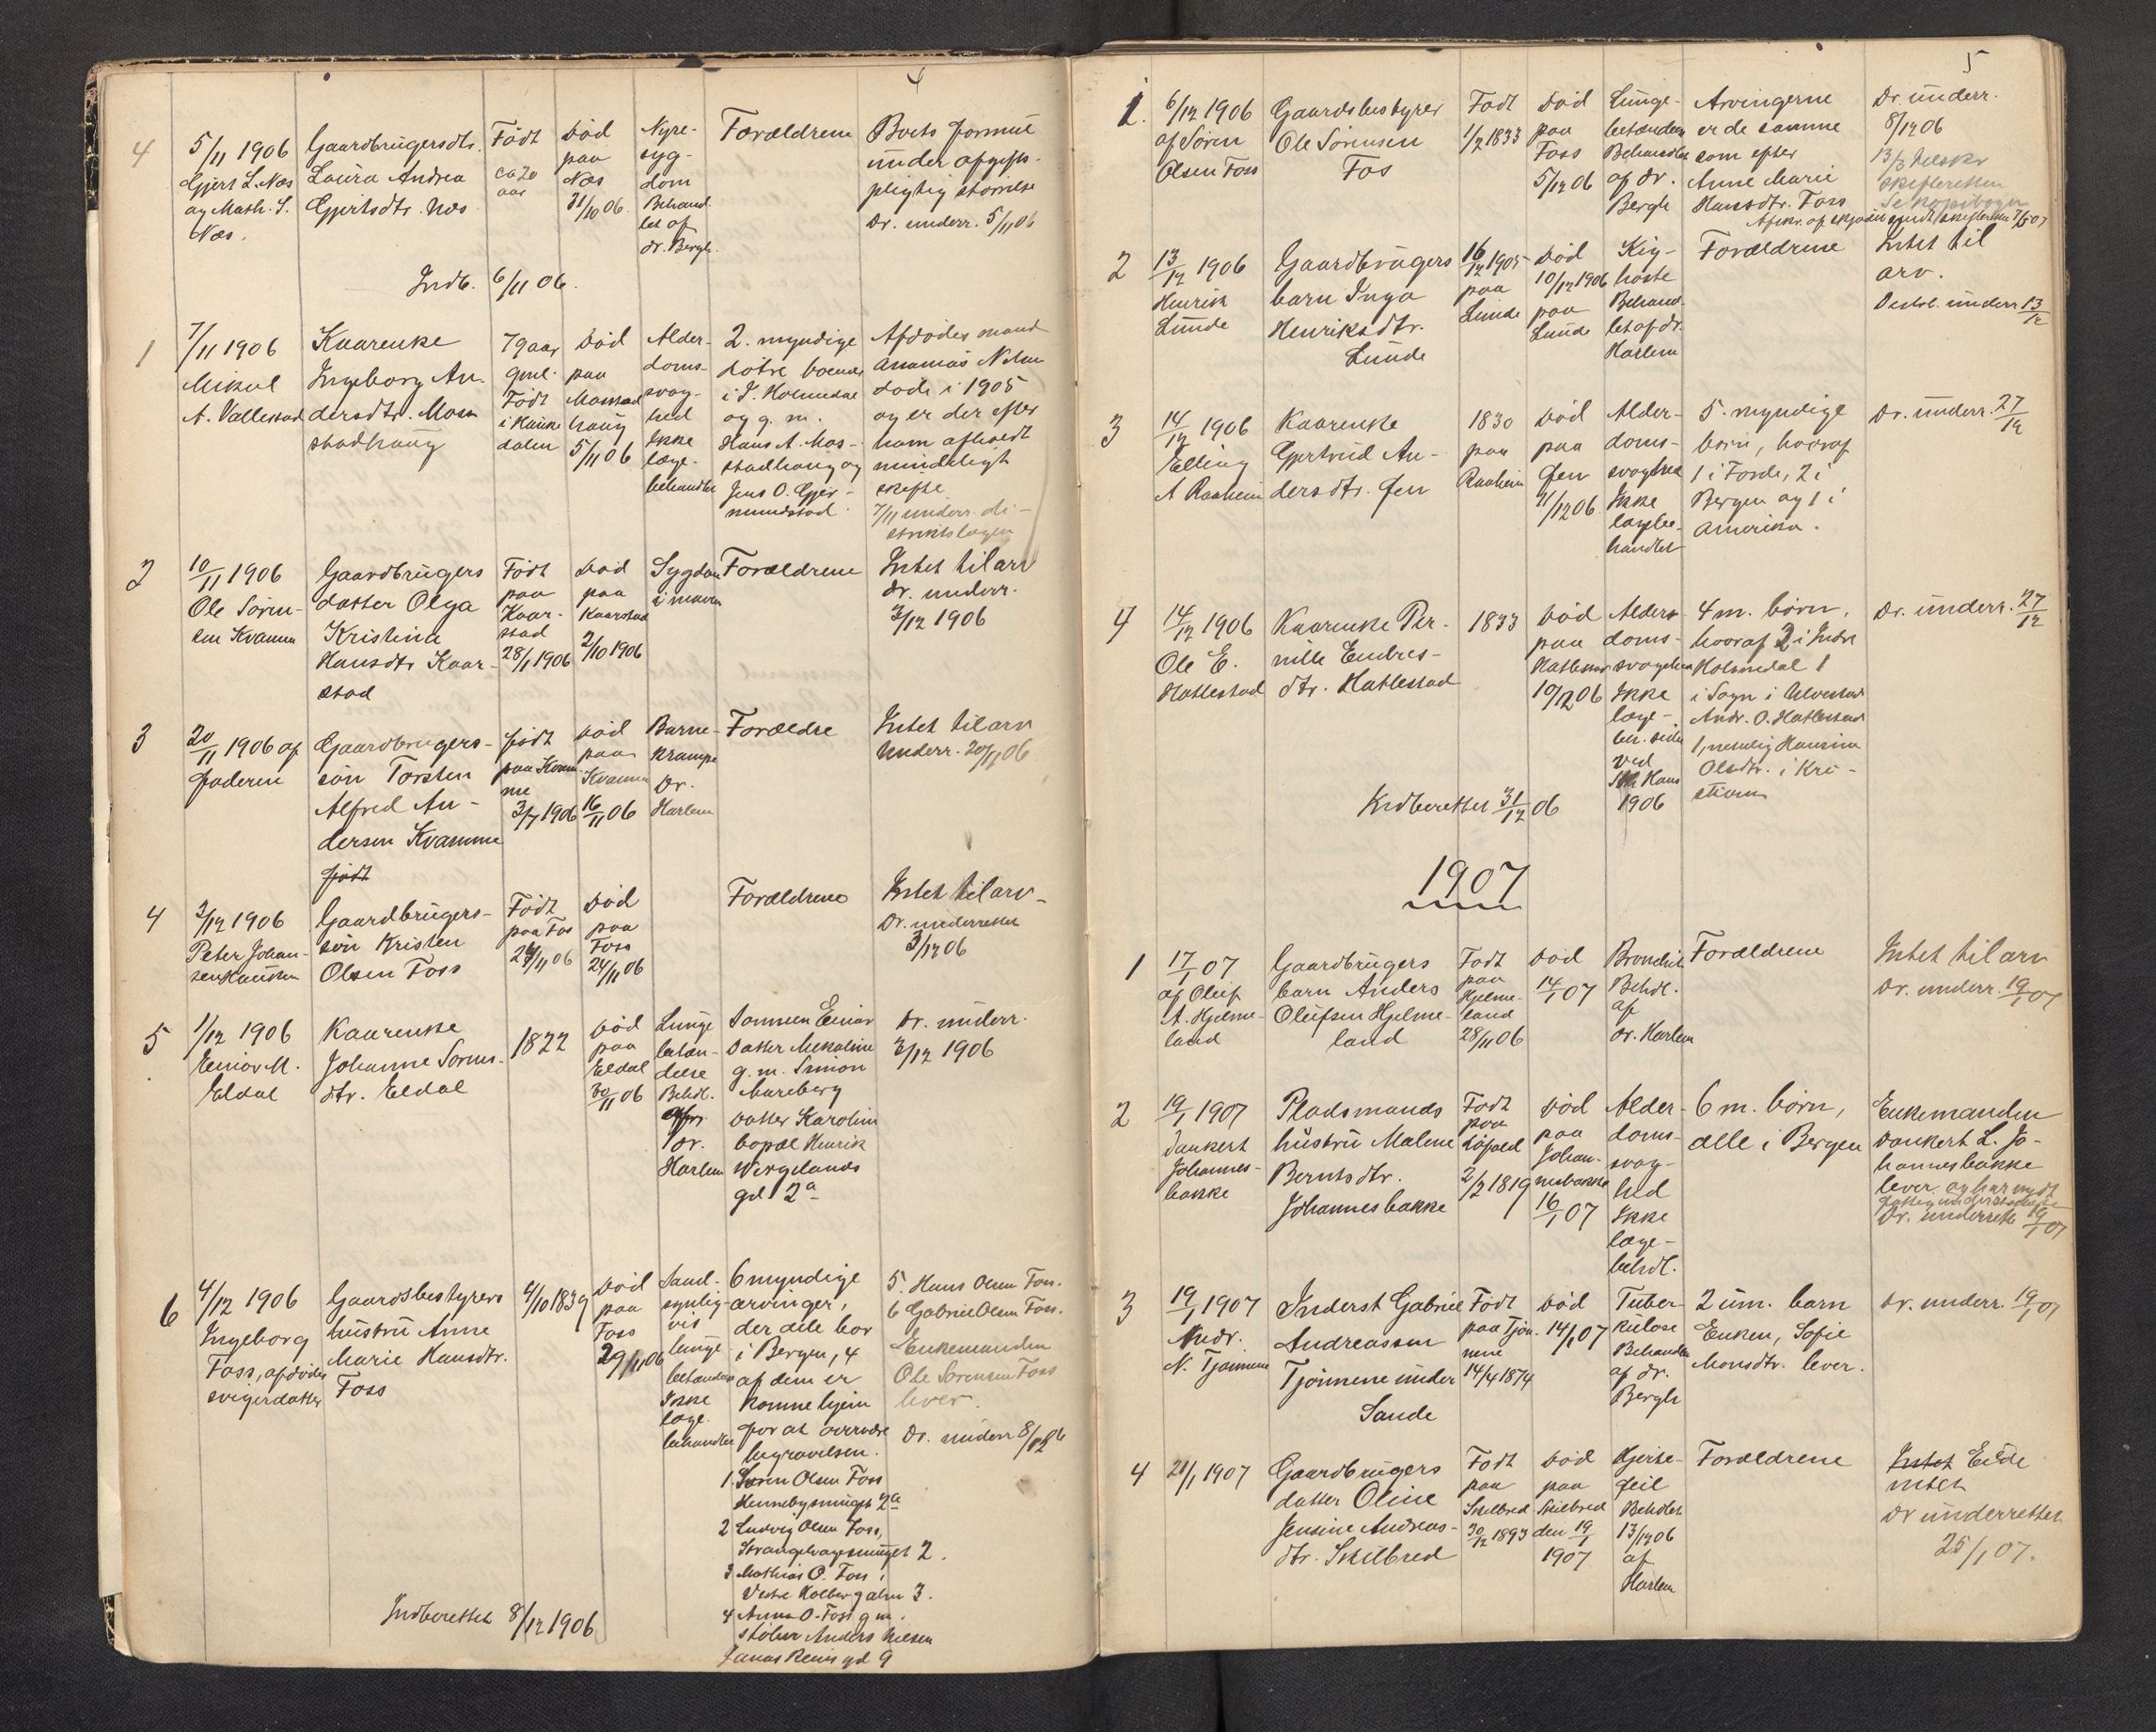 4
4
5/11 1906
Gjert L. Næs
og Math. S.
Næs.
Gaardbrugersdtr.
Laura Andrea
Gjertsdtr. Næs
Født
ca 20
aar
Død
paa
Næs
31/10 06
Nyre-
syg-
dom
Behand-
let af
dr. Bergh.
Forældrene
Boets formue
under afgifts-
pligtig størrelse
Dr. underr. 5/11 06
Indb. 6/11 06.
1
7/11 1906
Mikal
A. Vallestad
Kaarenke
Ingeborg An-
dersdtr. Mosm
stadhaug
79 aar
gml.
Født
i Hauke
dalen
Død
paa
haug
5/11 06
Alder-
doms-
svag-
hed
Ikke
læge-
behandlet
2. myndige
døtre boende
i I. Holmedal
og g. m.
Hans A. Mos-
stadhaug og
Jens O. Gjer-
mundstad.
Afdødes mand
Ananias
døde i 1905
og er der efter
ham afholdt
mindeligt
skifte
7/11 underr. di-
striktslægen
2
10/11 1906
Ole Søren-
sen Kvamm
Gaardbrugers
datter Olga
Kristina
Hansdtr Kaar-
stad
Født
paa
Kaar-
stad
28/1 1906
Død
paa
Kaarstad
2/10 1906
Sygdom
i maven
Forældrene
Intet til arv
dr. underr.
3/12 1906
3
20/11 1906 af
faderen
Gaardbrugers-
søn Torsten
Alfred An-
dersen Kvamme
født
født
paa Kvam-
me
3/7 1906
Død
paa
Kvamm
16/11 06
Barne-
krampe
Dr.
Harlem
Forældre
Intet til arv
Underr. 20/11 06
4
3/12 1906
Peter Johan-
sen
Gaardbrugers-
søn Kristen
Olsen Foss
Født
paa Fos
24/11 06
Død
paa
Foss
24/11 06
Forældrene
Intet til arv-
Dr. underrettet
3/12 06
5
1/12 1906
Einar M.
Eldal
Kaarenke
Johanne Sørens-
dtr. Eldal
1822
Død
paa
Eldal
30/11 06
Lunge
betæn-
delse
Behdl.
af
dr.
Harlem
Sønnen Einar
Datter Mekaline
g. m. Simon
Mareberg
Datter Karolin
bopæl Henrik
Wergelands
gd 2a
Dr. underr.
3/12 1906
6
4/12 1906
Ingeborg
Foss, afdødes
svigerdatter
Gaardsbestyrers
hustru Anne
Marie Hansdtr.
Foss
4/10 1839
Død
paa
Foss
29/11 06
Sand-
synlig-
vis
lunge-
betændelse
Ikke
læge-
behandlet
6 myndige
arvinger,
der dele bor
i Bergen, 4
af dem er
komne hjem
for at overvære
begravelsen.
1. Søren Olsen Foss
2a
2 Ludvig Olsen Foss,
Strangehagesmuget 2.
3 Mathias O. Foss,
Vestre Holbergalm 3.
4 Anna O. Foss g m.
Anders Nilsen
Jonas Reins gd 9
5. Hans Olsen Foss.
6 Gabriel Olsen Foss.
Enkemanden
Ole Sørensen Foss
lever.
Dr. underr 8/12 06
Indberettet 8/12 1906
5
1.
6/12 1906
af Søren
Olsen Foss
Gaardsbestyrer
Ole Sørensen
Fos
Født
1/2 1833
Død
paa
Foss
5/12 06
Lunge-
betændelse
Behandlet
af dr.
Bergh
Arvingerne
er de samme
som efter
Anne Marie
Hansdtr. Foss
Dr. underr.
8/12 06
skifteretten
Se kopibogen
Afskr. af skjøde sendt skifteretten 7/5 07
2
13/12 1906
Henrik
Lunde
Gaardbrugers
barn Inga
Henriksdtr.
Lunde
16/12 1905
paa
Lunde
Død
10/12 1906
paa
Lunde
Kig-
hoste
Behand-
let af dr.
Harlem
Forældrene
Intet til
arv.
underr 13/12
3
14/12 1906
Elling
A Raaheim
Kaarenke
Gjertrud An-
dersdtr. Jen
1830
paa
Raaheim
Død
paa
Jen
11/12 06
Alder-
doms-
svaghed
Ikke
lægebe-
handlet
5. myndige
børn, hvoraf
1 i Førde, 2 i
Bergen og 1 i
Amerika.
Dr. underr. 27/12
4
14/12 1906
Ole E.
Hatlestad
Kaarenke Per-
nille Endres-
dtr. Hatlestad
1833
Død
paa
Hatlestad
10/12 06
Alders
doms-
svaghed
Ikke
læge-
beh. siden
ved
Skt Hans
1906
4 m. børn,
hvoraf 2 i Indre
Holmedal 1
i Sogn i
Andr. O. Hatlestad
1, nemlig Hansine
Olsdtr. i Kri-
stiania
Dr. underr. 27/12
Indberettet 31/12 06
1907
1
17/1 07
af Oluf
A. Hjelme-
land
Gaardbrugers
barn Anders
Olufsen Hjelme-
land
Født
paa
Hjelme-
land
28/11 06
Død
14/1 07
Bronchit
Behdl.
af
dr. Harlem
Forældrene
Intet til arv
Dr. underr. 19/1 07
2
19/1 1907
Dankert
Johannes-
bakke
Pladsmands
hustru Malene
Berntsdtr.
Johannesbakke
Født
paa
2/2 1819
Død
paa
Johan-
nesbakke
16/1 07
Alder-
doms-
svag-
hed
Ikke
læge-
behdl.
6 m. børn,
alle i Bergen
Enkemanden
Dankert L. Jo-
hannesbakke
lever og har nydt
fattigunderstøttelse
Dr. underrett 19/1 07
3
19/1 1907
Andr.
N. Tjønnene
Inderst Gabriel
Andreassen
Tjønnene under
Sande
Født
paa Tjøn-
nene
14/4 1874
Død
14/1 07
Tuber-
kulose
Behandlet
af dr.
Bergh
2 um. barn
Enken, Sofie
Monsdtr. lever.
Dr. underr. 19/1 07
4
21/1 1907
Gaardbrugers
datter Oline
Jensine Andreas-
dtr. Skilbred
Født
paa
Skilbred
30/12 1893
Død
paa
Skilbred
den 19/1
1907
Hjerte-
feil
Behdlet
13/12 06
af
Harlem
Forældrene
Intet Eide
intet
Dr underrettet
25/1 07.